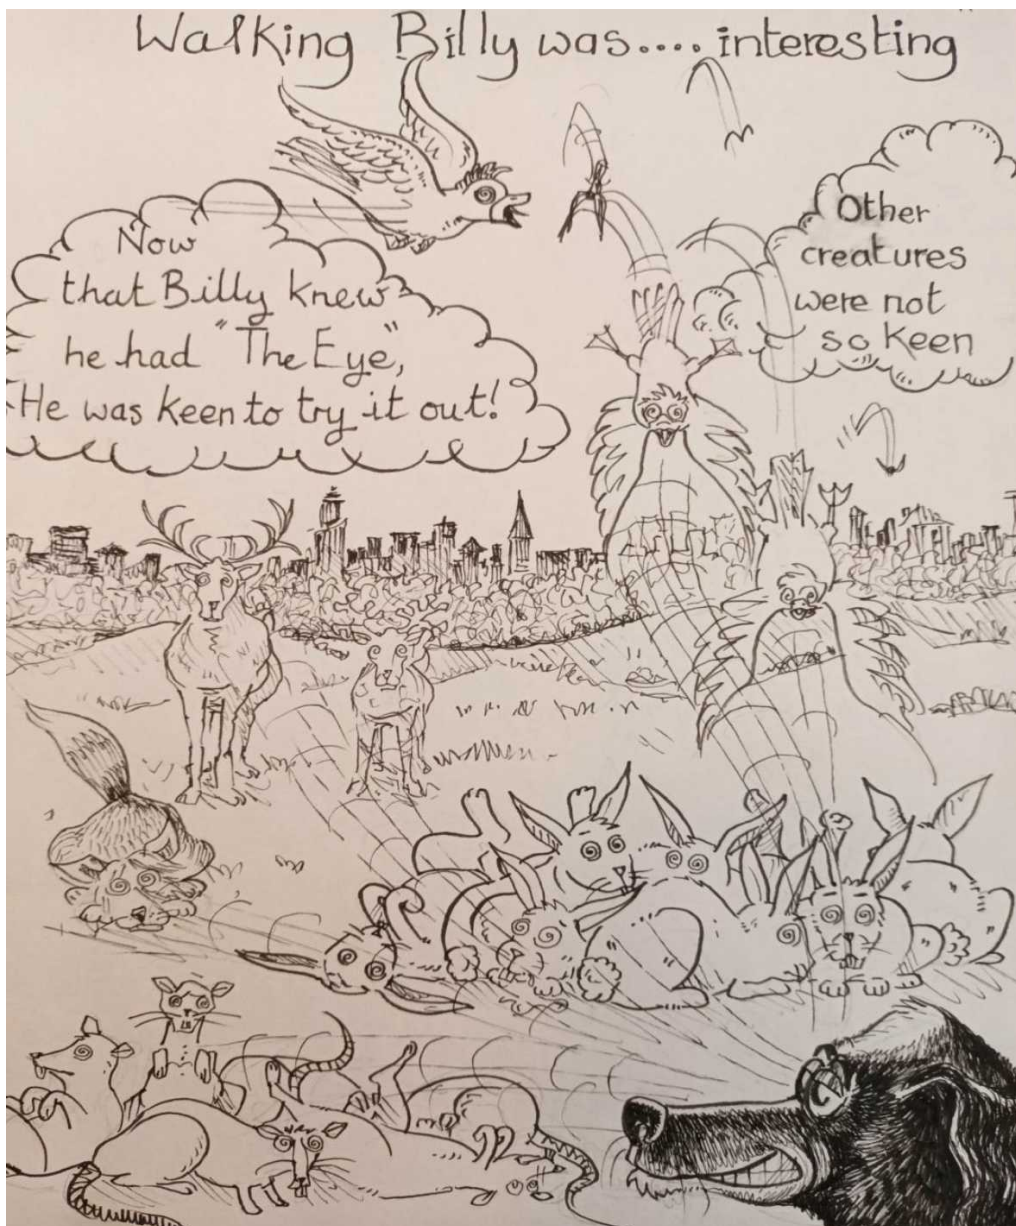 Walking Billy was.... interesting
Now
that Billy knew
he had "The Eye",
He was keen to try it out!
Other
creatures
were not
so keen